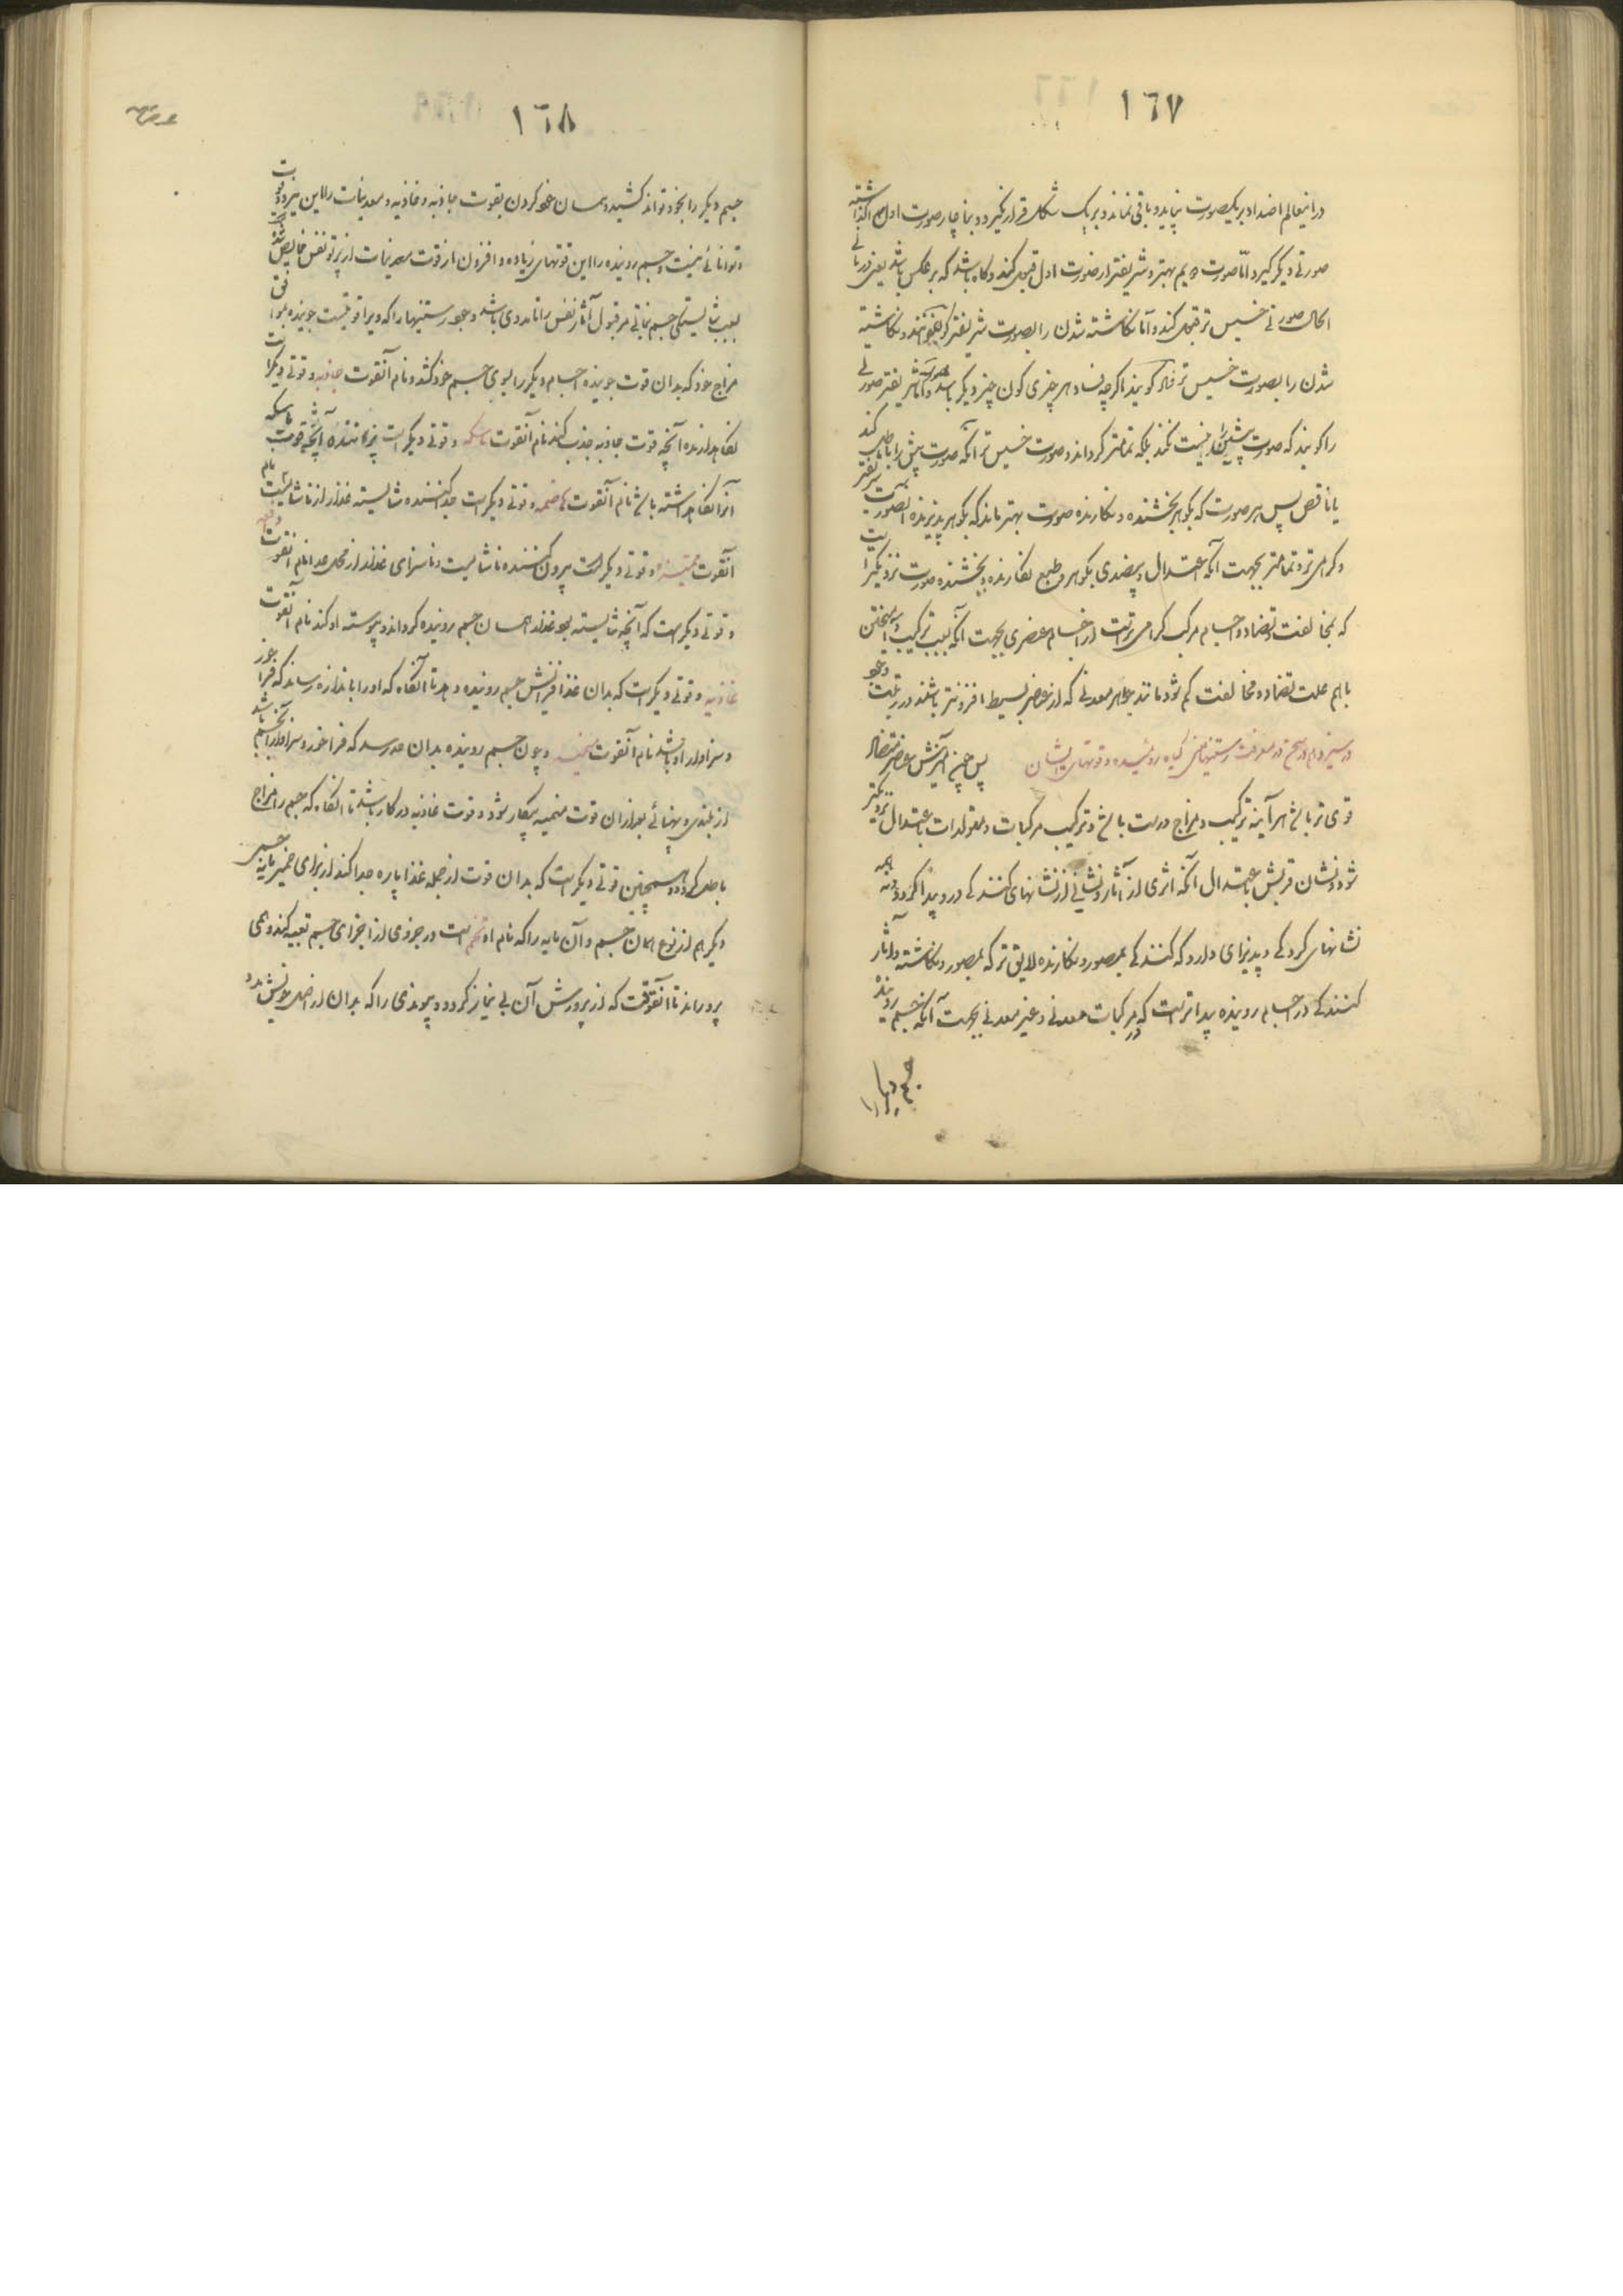 ١٦٧
در این عالم اضداد بر یکصورت نپاید و باقی نماند و بر یک شکل قرار نگیرد و بناچار صورت اول گذاشته
صورتی دیگر گیرد امّا صورت دویم بهتر و شریفتر از صورت اول قبول کند و گاه باشد که بر عکس باشد یعنی در
صورتی خسیس‌تر قبول کند و امّا نگاشته شدن را بصورت شریفتر کون خوانند و نگاشته
شدن را بصورت خسیس‌تر فساد گویند اگرچه فساد هر چیزی کون چیز دیگر باشد و امّا شریفتر صورتی
را گویند که صورت پیشین را نیست نکند بلکه تمامتر گرداند و صورت خسیس‌تر آنکه صورت پیش را باطل کند
یا ناقص پس هر صورت که بگوهر بخشنده و نگارنده صورت بهتر ماند که بگوهر پذیرنده آنصورت شریفتر است
و گرامی‌تر و تمامتر بجهت آنکه اعتدال و بیضدی بگوهر و طبع نگارنده و بخشنده صورت نزدیکتر است
که بمخالفت و تضاد و اجسام مرکب گرامی‌تر است از اجسام عنصری بجهت آنکه بسبب ترکیب و آمیختن
با هم علت تضاد و مخالفت کم شود مانند جواهر معدنی که از عناصر بسیط افزونتر باشند در رتبت وجود
در سیزدهم در سخن در معرفت رستنیها یعنی گیاه روینده و قوتهای ایشان پس چنین آمیزش عناصر متضاد
قوی‌تر باشد هر آینه ترکیب و مزاج درست باشد و ترکیب مرکبات و متولدات باعتدال نزدیکتر
شود و نشان قربش باعتدال آنکه اثری از آثار و نشانی از نشانهای کنندگی در او پیدا گردد و نه همه
نشانهای کردگی و پذیرائی دارد که کنندگی بمصور و نگارنده لایق‌تر که بمصور و نگاشته و آثار
کنندگی در اجسام روینده پیداتر است که در مرکبات معدنی و غیر معدنی بجهت آنکه جسم روینده
جسم دیگر را
١٦٨
جسم دیگر را بخود تواند کشید و همسان خود کردن بقوت جاذبه و غاذیه و معدنیات را این نیرو و قوت
و توانائی نیست و جسم روینده را این قوتهای زیاده و افزون از قوت معدنیات از پرتو نفس فایض شده
بسبب شایستگی جسم نباتی مر قبول آثار نفس را تا مددی باشد وجود رستنیها را که ویرا قوتیست جوینده موافق
مزاج خود که بدان قوت جوینده اجسام دیگر را بسوی جسم خود کشد و نام آنقوت جاذبه و قوتی دیگر است
نگاهدارنده آنچه قوت جاذبه جذب کند نام آنقوت ماسکه و قوتی دیگر است پزاننده آنچه قوت ماسکه
آنرا نگاهداشته باشد نام آنقوت هاضمه و قوتی دیگر است جداکننده شایسته غذا از ناشایست نام
آنقوت ممیزه و قوتی دیگر است بیرون کننده ناشایست و ناسزای غذا از محل غذا نام آنقوت دافعه
و قوتی دیگر است که آنچه شایسته بود غذا همسان جسم روینده گرداند و پیوسته او کند نام آنقوت
غاذیه و قوتی دیگر است که بدان غذا افزایش جسم روینده دهد تا آنگاه که او را باندازه رساند که فراخور
و سزاوار او باشد نام آنقوت منمیه و چون جسم روینده بدان حد رسد که فراخور و سزاوار آن جسم باشد
از بلندی و پهنائی بعد از آن قوت منمیه بیکار شود و قوت غاذیه در کار باشد تا آنگاه که جسم را مزاج
باطل گردد و همچنین قوتی دیگر است که بدان قوت از جمله غذا پاره جدا کند از برای خمیر مایه جسمی
دیگر هم از نوع همان جسم و آن مایه را که نام او تخم است در جزوی از اجزای جسم تعبیه کند و همی
پروراند تا آنوقت که از پرورش آن بی نیاز گردد و پیوندی را که بدان از اصل خویش بدو